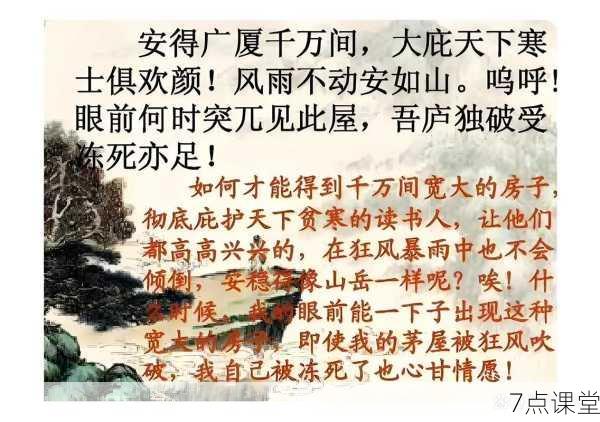 安得广厦千万间，大庇天下寒
士俱欢颜！风雨不动安如山。呜呼!
眼前何时突兀见此屋，吾庐独破受
冻死亦足！
如何才能得到千万间宽大的房子,
彻底庇护天下贫寒的读书人，让他们
都高高兴兴的，在狂风暴雨中也不会
倾倒，安稳得像山岳一样呢？唉！什
么时候，我的眼前能一下子出现这种
宽大的房子，即使我的茅屋被狂风吹
破，我自己被冻死了也心甘情愿！
7点课堂